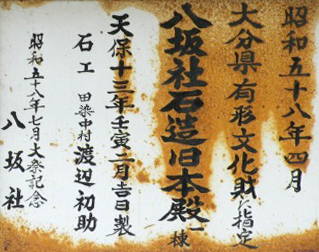 昭和五十八年四月
大分県有形文化財に指定
八坂社石造旧本殿一棟
天保十三年壬寅二月吉日製
石工 田染中村 渡辺初助
昭和五十八年七月大祭記念
八坂社